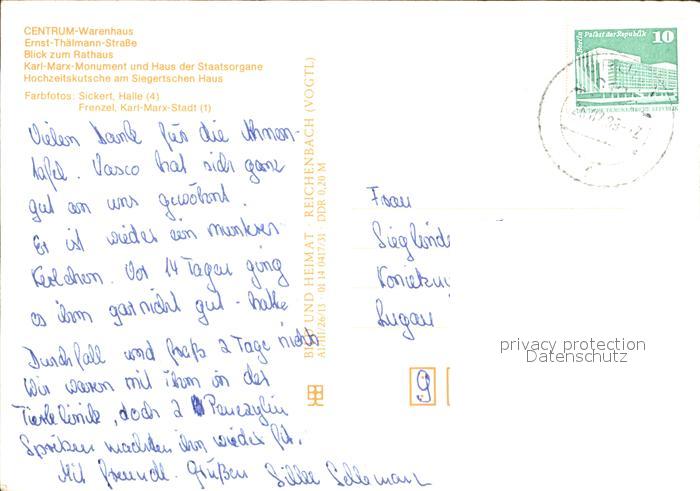 CENTRUM-Warenhaus
Ernst-Thälmann-Straße
Blick zum Rathaus
Karl-Marx-Monument und Haus der Staatsorgane
Hochzeitskutsche am Siegertschen Haus
Farbfotos: Sickert, Halle (4)
Frenzel, Karl-Marx-Stadt (1)
Vielen Dank für die Ahnen-
tafel. Vasco hat sich ganz
gut an uns gewöhnt.
Er ist wieder ein munteres
Kerlchen. Vor 14 Tagen ging
es ihm gar nicht gut - hatte
Durchfall und fraß 2 Tage nichts
Wir waren mit ihm in der
Tierklinik, doch 2
Spritzen machten ihn wieder fit.
Mit freundl. Grüßen
BILD UND HEIMAT REICHENBACH (VOGTL)
A1/III/26/13 01 14 0417/31 DDR 0,20 M
Berlin Palast der Republik 10
Frau
Sieglinde
Lugau
9
privacy protection
Datenschutz